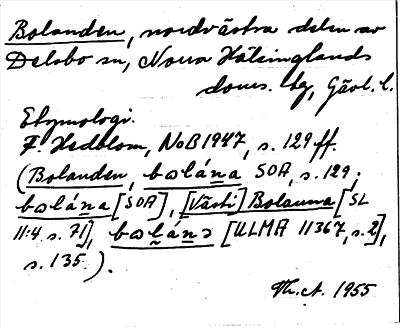 Bolanden, nordvästra delen av
Delsbo sn, Norra Hälsinglands
doms. hg, Gävl. l.
Etymologi.
F. Hedblom, NoB 1947, s. 129 ff.
(Bolanden, bɷlána SOA, s. 129;
bɷlána [SOA], [Västi] Bolanna [SL
11:4 s. 71], bɷlánɔ [ULMA 11367, s. 2],
s. 135).
Th. A. 1955